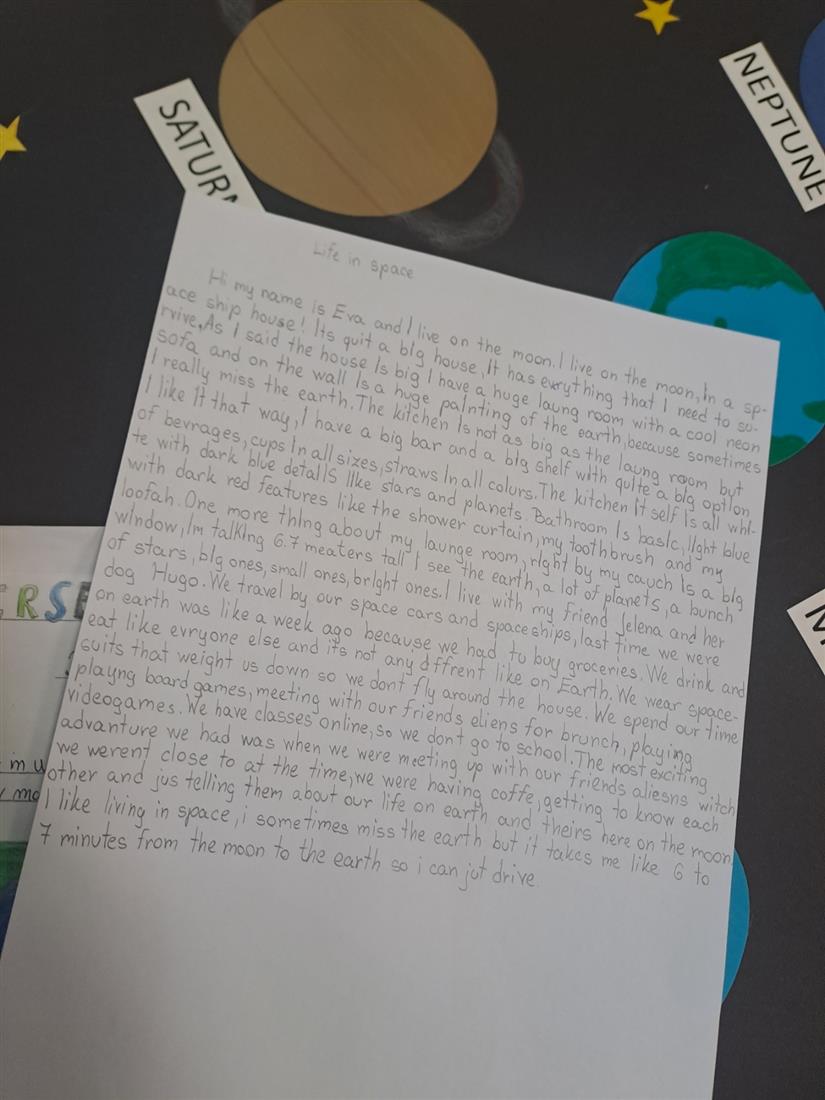 SATURN
NEPTUNE
Life in space
Hi my name is Eva and I live on the moon. I live on the moon, In a sp-
ace ship house! Its quit a bIg house, It has evrything that I need to su-
rvive. As I said the house Is big I have a huge laung room with a cool neon
sofa and on the wall Is a huge paInting of the earth, because sometimes
I really miss the earth. The kitchen Is not as big as the laung room but
I like It that way, I have a big bar and a bIg shelf wIth quIte a bIg optIon
of bevrages, cups In all sizes, straws In all colurs. The kitchen It self Is all whI-
te with dark blue detaIls lIke stars and planets. Bathroom Is basIc, lIght blue
with dark red features like the shower curtain, my toothbrush and my
loofah. One more thIng about my launge room, rIght by my cauch Is a bIg
wIndow, Im talkIng 6.7 meaters tall I see the earth, a lot of planets, a bunch
of stars, bIg ones, small ones, brIght ones. I live with my friend Jelena and her
dog Hugo. We travel by our space cars and spaceships, last time we were
on earth was like a week ago because we had to buy groceries. We drink and
eat like evryone else and its not any dffrent like on Earth. We wear space-
suits that weight us down so we dont fly around the house. We spend our time
playng board games, meeting with our friends eliens for brunch, playing
videogames. We have classes online, so we dont go to school. The most exciting
advanture we had was when we were meeting up with our friends aliesns witch
we werent close to at the time, we were having coffe, getting to know each
other and jus telling them about our life on earth and theirs here on the moon.
I like living in space, i sometimes miss the earth but it takes me like 6 to
7 minutes from the moon to the earth so i can jut drive.